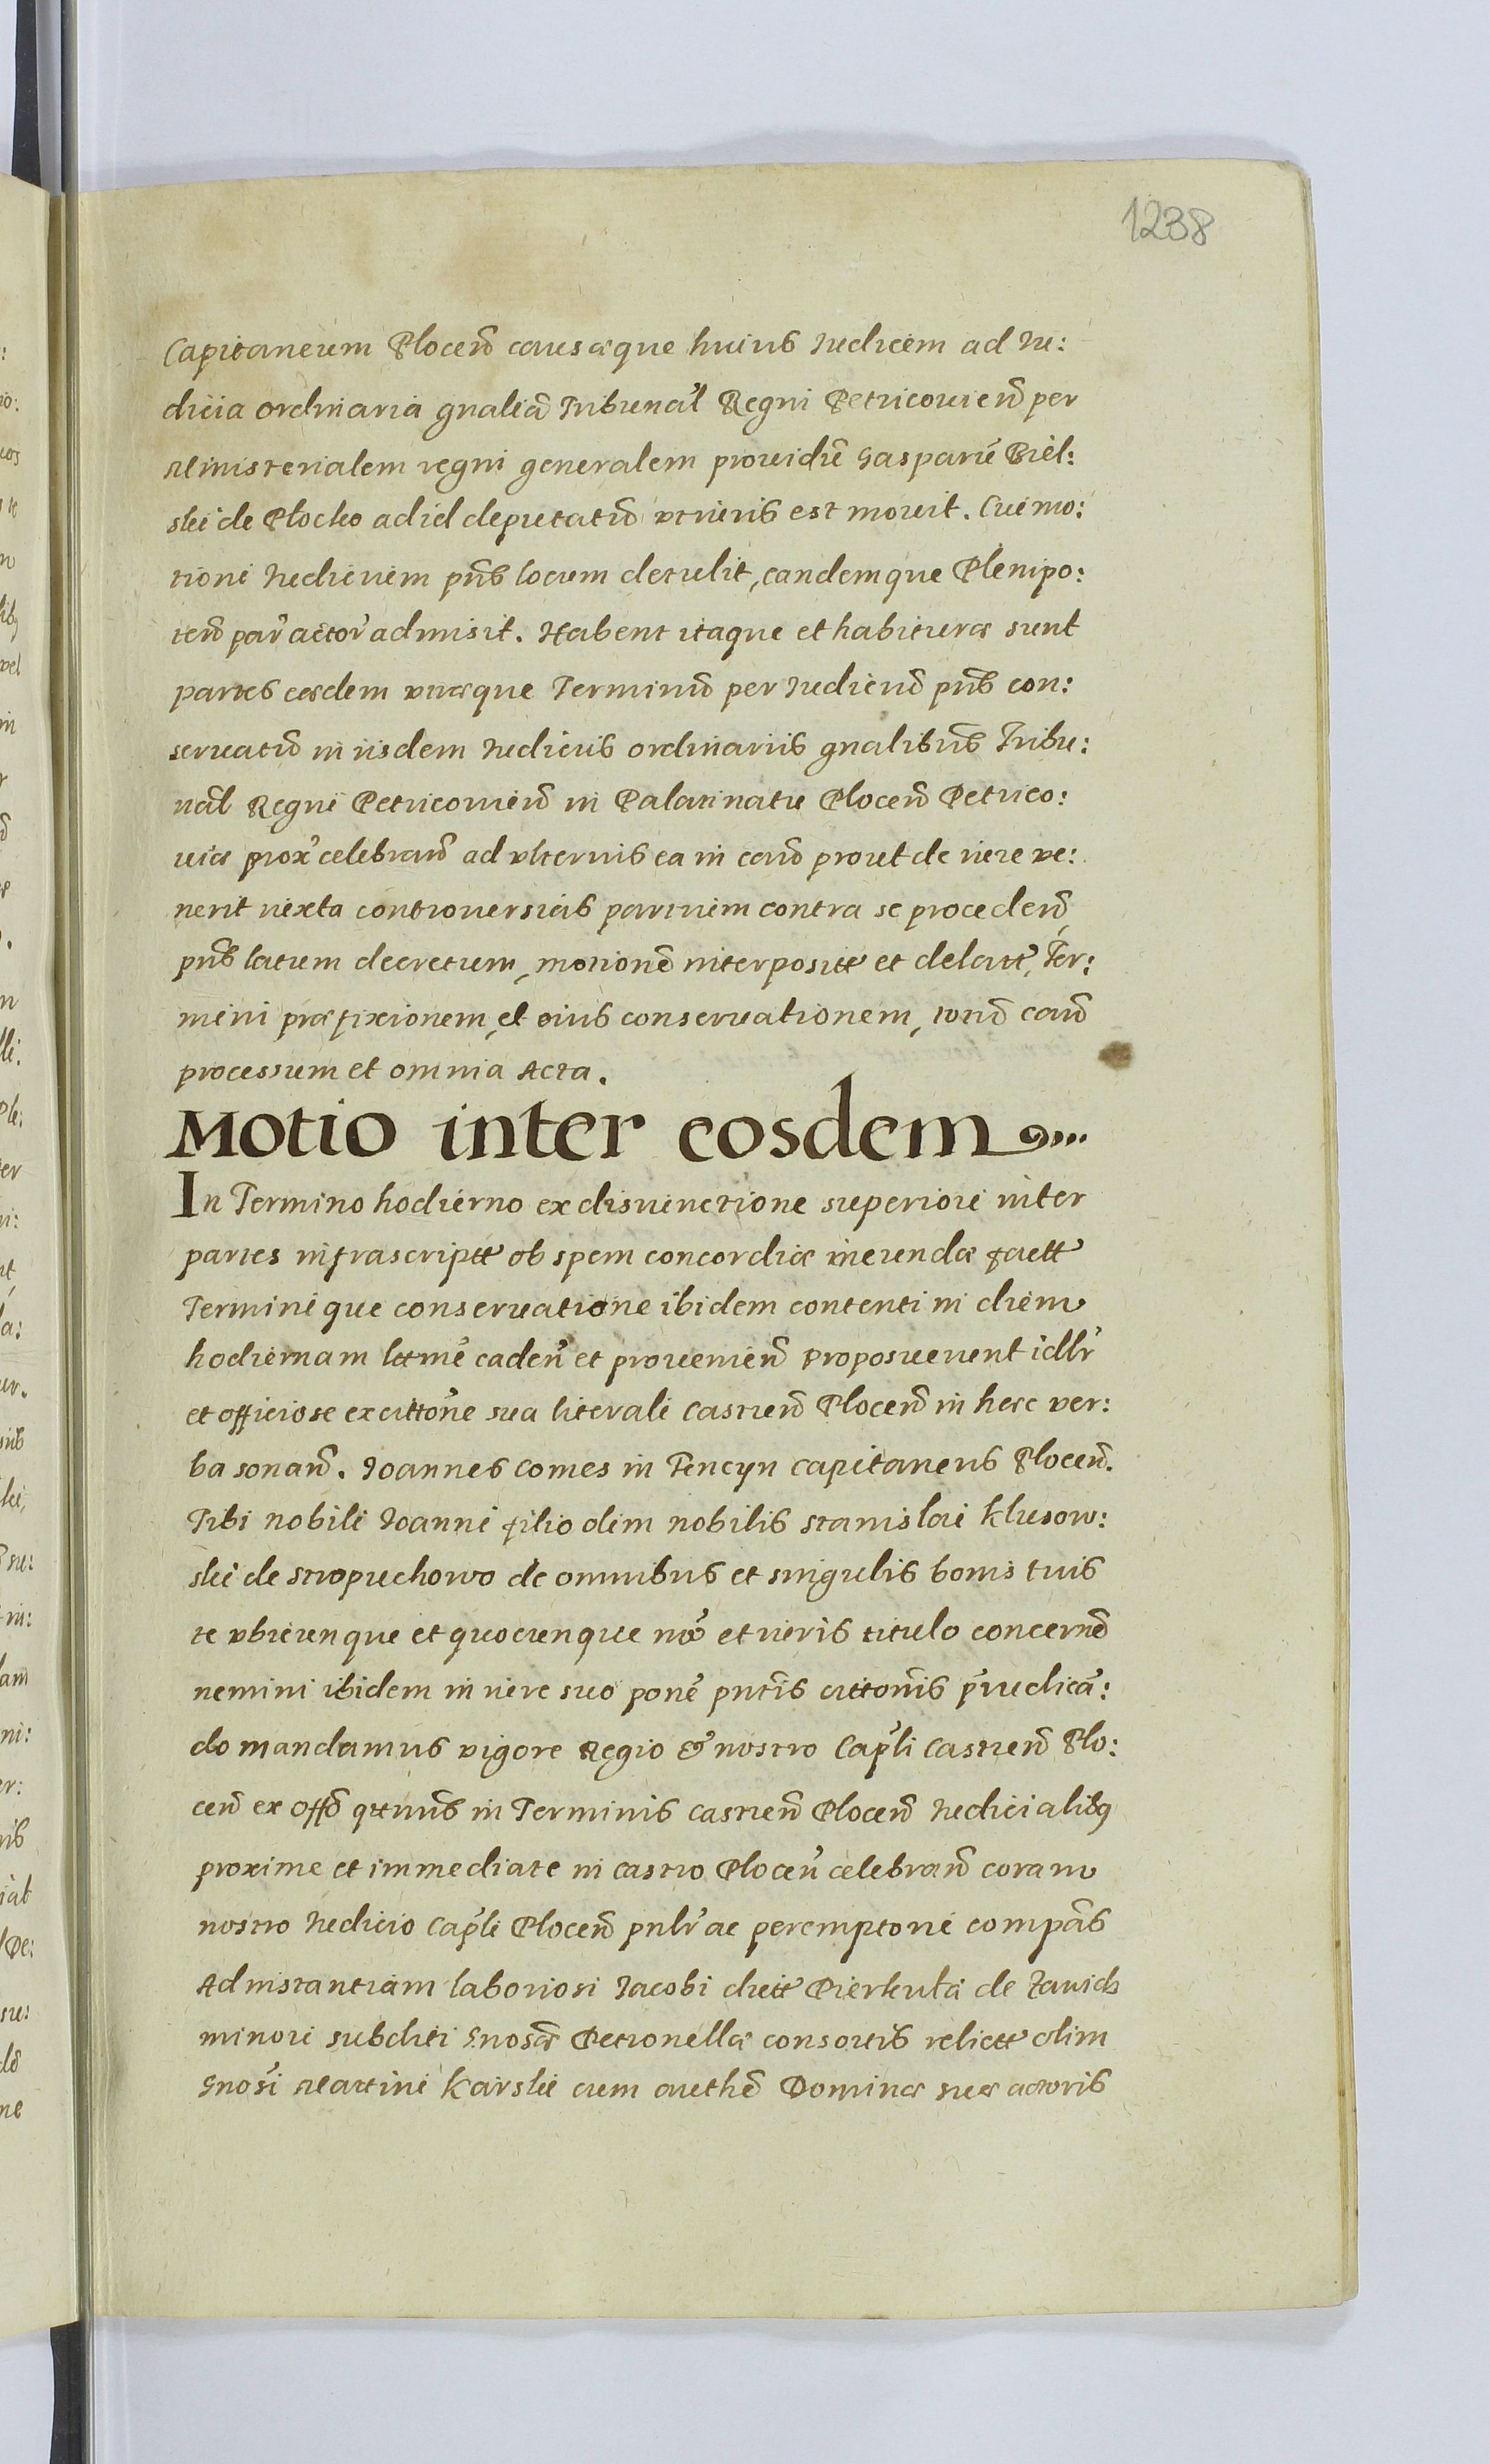 1238
Capitaneum Plocen̄ causæque huius Iudicem ad Iu:
dicia ordinaria gnaliā Tribunal Regni Petricouien̄ per
Ministerialem regni generalem prouidū Gasparū Biel:
ski de Plocko ad id deputatū vt iuris est mouit. Cui mo:
tioni Iudicium pn̄s locum detulit, eandemque Plenipo:
ten̄ par̄ actor̄ admisit. Habent itaque et habituræ sunt
partes eædem vtræque Terminū per Iudiciū pn̄s con:
seruatū in iisdem Iudiciis ordinariis gnalibus Tribu:
nal Regni Petricouien̄ in Palatinatu Plocen̄ Petrico:
uiæ prox̄ celebran̄ ad vlterius ea in cau̅ prout de iure ve:
nerit iuxta controuersias partium contra se proceden̄,
pn̄s latum decretum, motionē interposit̄ et delat̄, Ter:
mini præfixionem, et eius conseruationem, totū cau̅
processum et omnia Acta.
Motio inter eosdem
In Termino hodierno ex disiunctione superiori inter
partes infrascript̄ ob spem concordiæ ineundæ fact̄
Terminique conseruatione ibidem contenti in diem
hodiernam lt̄imē caden̄ et prouenien̄ proposuerunt idlr̄
et officiose ex citt̄onē sua literali Castren̄ Plocen̄ in hæc ver:
ba sonan̄. Ioannes Comes in Tencyn Capitaneus Plocen̄.
Tibi nobili Ioanni filio olim nobilis Stanislai Klusow:
ski de Stropuchowo de omnibus et singulis bonis tuis
te vbicunque et quocunque nōē et iuris titulo concernē
nemini ibidem in iure suo ponē pn̄tis citt̄onis p̄iudicā:
do mandamus vigore Regio & nostro Cap̄li Castren̄ Plo:
cen̄ ex offō qt̄enus in Terminis Castren̄ Plocen̄ Iudicialibq
proxime et immediate in Castro Plocen̄ celebran̄ coram
nostro Iudicio Cap̄li Plocen̄ pn̄lr̄ ac peremptorie compās
Ad instantiam laboriosi Iacobi dict̄ Pierkuła de Zawids
minori subditi Gnosæ Petronellæ consortis relict̄ olim
Gnosī Martini Karski cum auth̄ē Dominæ suæ actoris